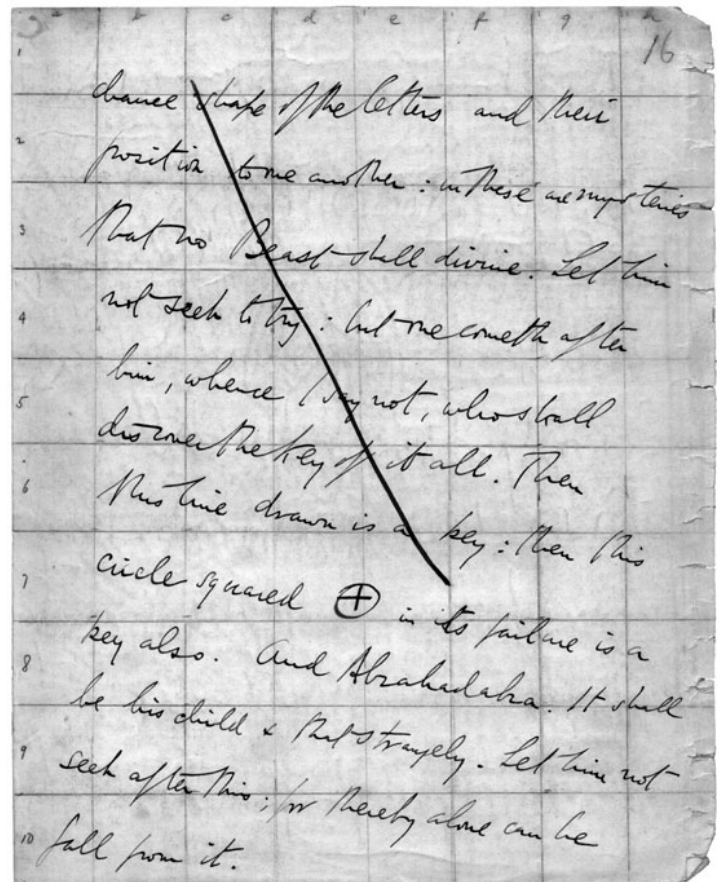 a b c d e f g h
16
1
chance shape of the letters and their
2
position to one another: in these are mysteries
3
that no Beast shall divine. Let him
4
not seek to try: but one cometh after
5
him, whence I say not, who shall
discover the Key of it all. Then
6
this line drawn is a key: then this
7
circle squared in its failure is a
8
key also. And Abrahadabra. It shall
be his child & that strangely. Let him not
9
seek after this; for thereby alone can he
10
fall from it.